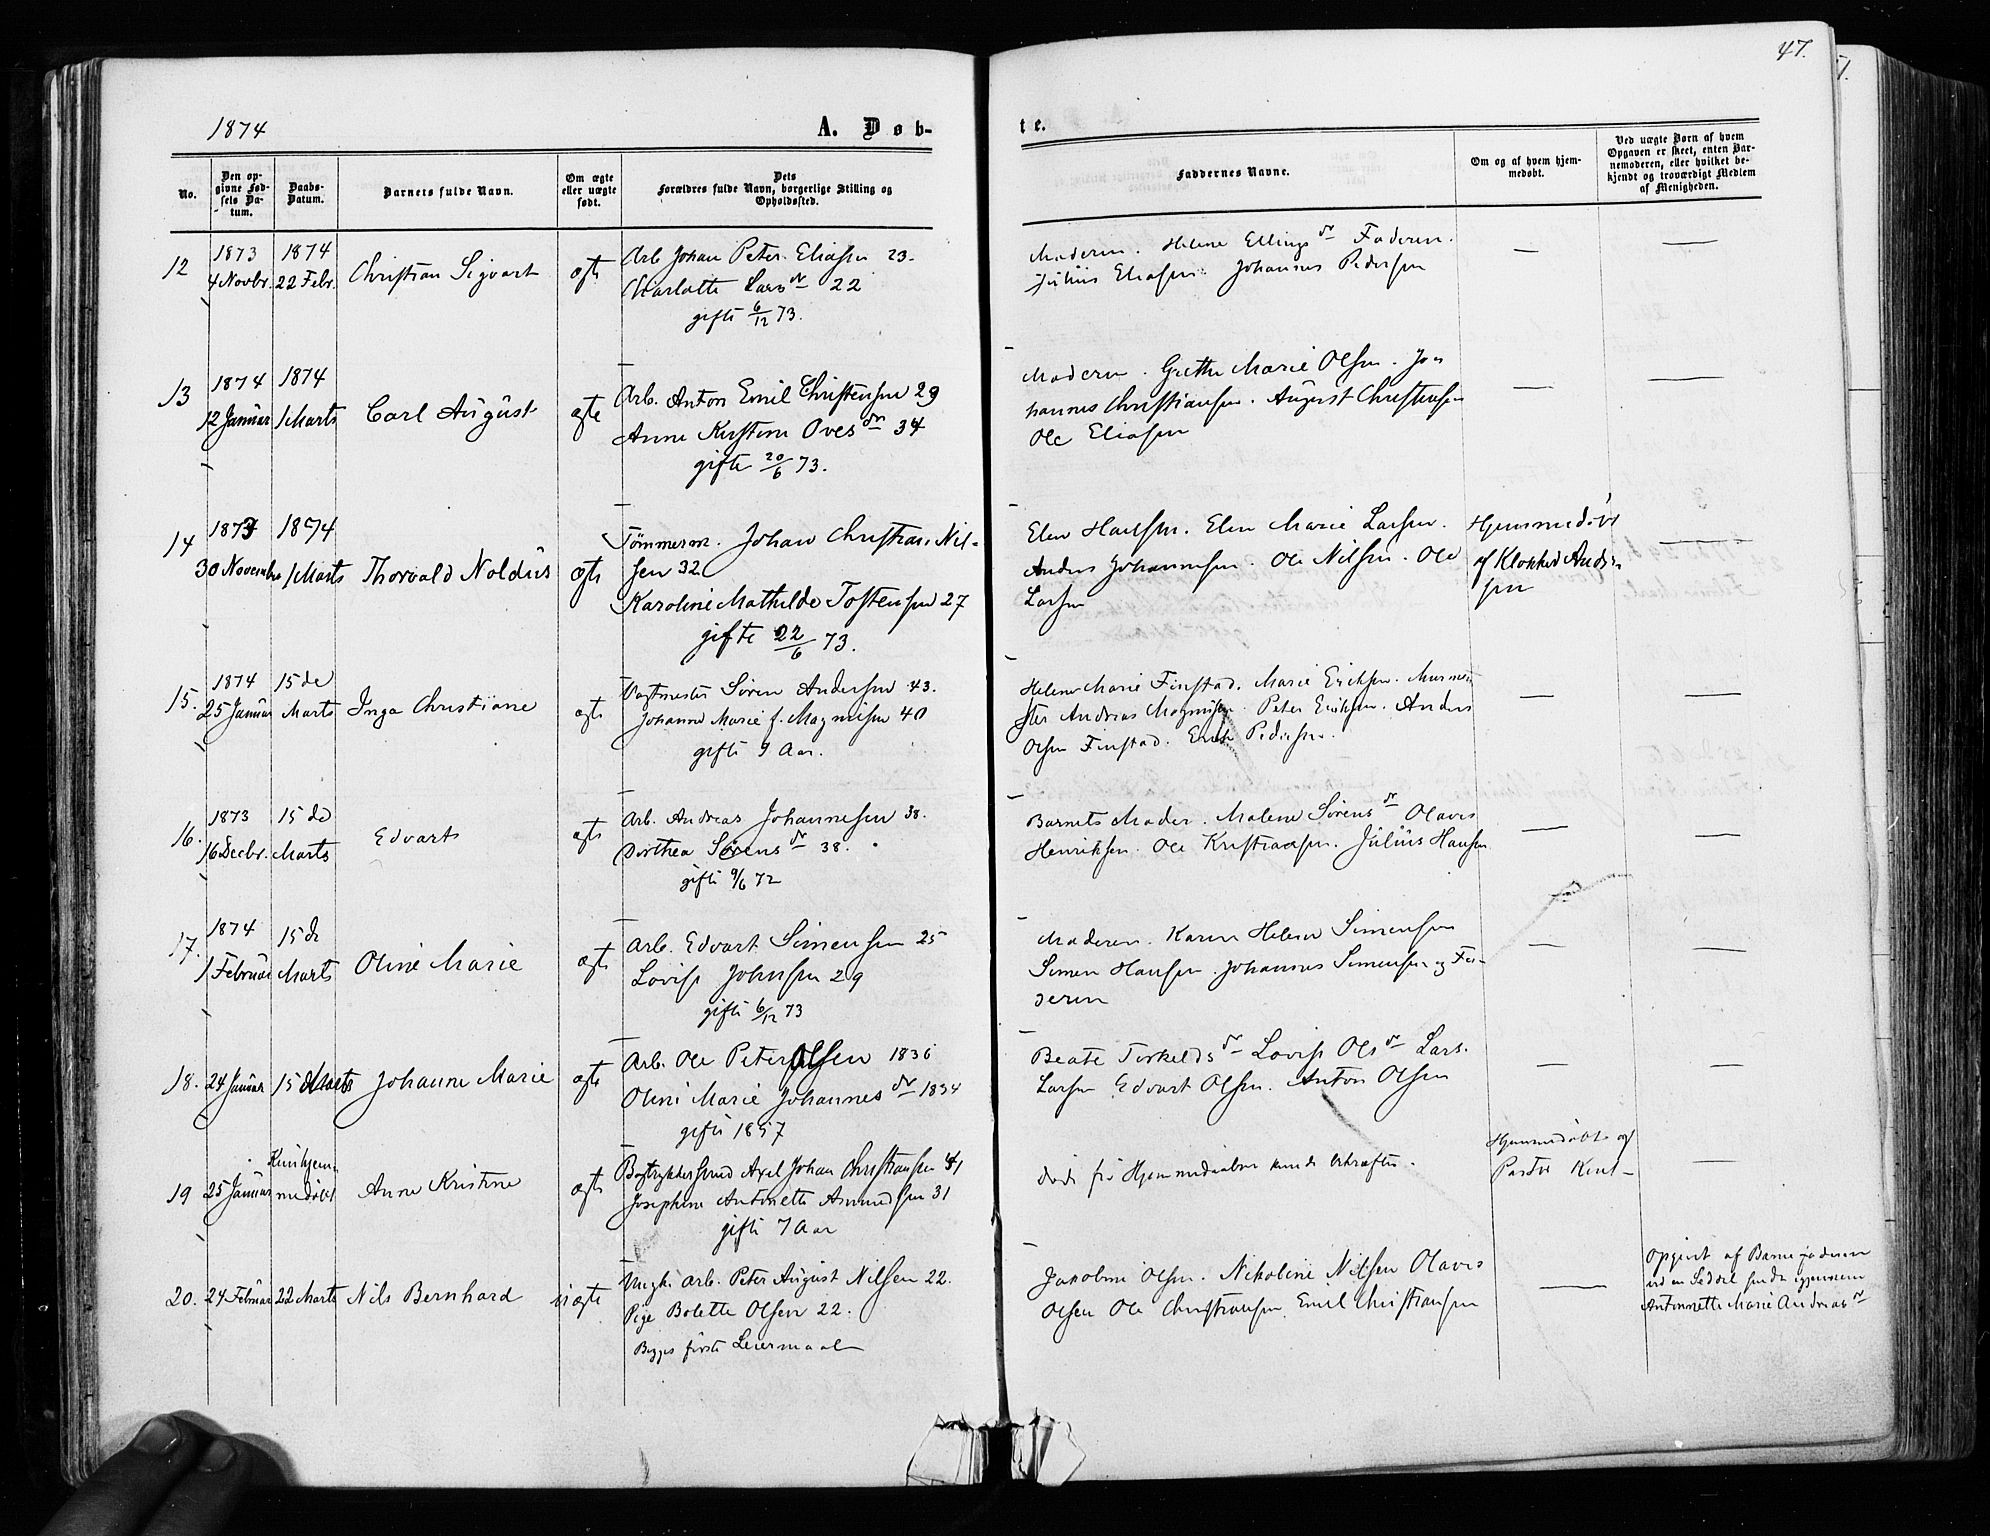 47.
1874
A. Døb-
te.
No.
Den op-
givne Fød-
sels Da-
tum.
Daabs-
Datum.
Barnets fulde Navn.
Om ægte
eller uægte
født.
Dets
Forældres fulde Navn, borgerlige Stilling og
Opholdssted.
Faddernes Navne.
Om og af hvem hjem-
medøbt.
Ved uægte Børn af hvem
Opgaven er skeet, enten Bar-
nemoderen, eller hvilket be-
kjendt og troværdigt Medlem
af Menigheden.
12
1873
4 Novbr.
1874
22 Febr.
Christian Sigvart
ægte
Arb Johan Peter Eliassen 23.
Charlotte Larsdr 22
gifte 6/12 73.
Moderen. Helene Ellingsdr Faderen.
Julius Eliassen. Johannes Pedersen
13
1874
12 Januar
1874
1 Marts
Carl August
ægte
Arb. Anton Emil Christensen 29
Anne Kirstine Ovesdr 34
gifte 20/6 73.
Moderen. Grethe Marie Olsen. Jo-
hannes Christiansen. August Christensen
Ole Eliasen
14
1873
30 November
1874
1 Marts
Thorvald Noldus
ægte
Tømmerm. Johan Christian Nil-
sen 32
Karoline Mathilde Tostensen 27
gifte 22/6 73.
Elen Hansen. Elen Marie Larsen.
Anders Johannesen. Ole Nilsen. Ole
Larsen
Hjemmedøbt
af Klokker Ander
sen
15.
1874
25 Januar
15de
Marts
Inga Christiane
ægte
Vagtmester Søren Andersen 43.
Johanne Marie f. Magnusen 40
gifte 9 Aar.
Helene Marie Finstad. Marie Eriksen. Murme
ster Andreas Magnusen. Peter Eriksen. Anders
Olsen Finstad. Erik Pedersen.
16.
1873
16 Decbr.
15de
Marts
Edvart
ægte
Arb. Andreas Johannesen 38.
Dorthea Sørensdr 38.
gifte 9/6 72
Barnets Moder. Malene Sørensdr Olavus
Henriksen. Ole Kristiansen. Julius Hansen
17.
1874
1 Februar
15de
Marts
Oline Marie
ægte
Arb. Edvart Simensen 25
Lovise Johnsen 29
gifte 6/12 73
Moderen. Karen Helene Simensen
Simen Hansen. Johannes Simensen og Fa-
deren
18.
24 Januar
15de Marts
Johanne Marie
ægte
Arb. Ole Peter Olsen 1836
Oline Marie Johannesdr 1834
gifte 1857
Beate Torkeldsdr Lovise Olsdr Lars
Larsen Edvart Olsen. Anton Olsen
19
25 Januar
Kun hjem-
medøbt
Anne Kristine
ægte
Bogtrykkersvend Axel Johan Christiansen 41
Josephine Antonette Amundsen 31
gifte 7 Aar
døde før Hjemmedaaben kunde bekræftes.
Hjemmedøbt af
Pastor
20.
24 Februar
22 Marts
Nils Bernhard
uægte
Ungk. arb. Peter August Nilsen 22.
Pige Bolette Olsen 22.
Begges første Leiermaal
Jakobine Olsen. Nikoline Nilsen Olavus
Olsen Ole Christiansen Emil Christiansen
Opgivet af Barnefaderen
ved en Seddel sendt igjennem
Antonnette Marie Andreasdr